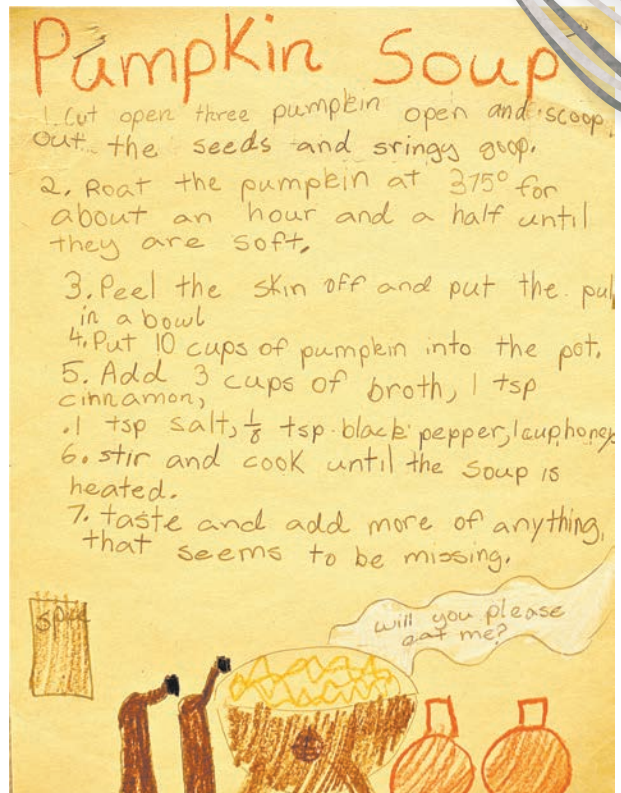 Pumpkin Soup
1. Cut open three pumpkin open and scoop
out the seeds and sringy goop.
2. Roat the pumpkin at 375° for
about an hour and a half until
they are soft.
3. Peel the skin off and put the pul
in a bowl
4. Put 10 cups of pumpkin into the pot.
5. Add 3 cups of broth, 1 tsp
cinnamon,
.1 tsp salt, 1/8 tsp black pepper, 1 cup honey
6. stir and cook until the soup is
heated.
7. taste and add more of anything,
that seems to be missing.
will you please
eat me?